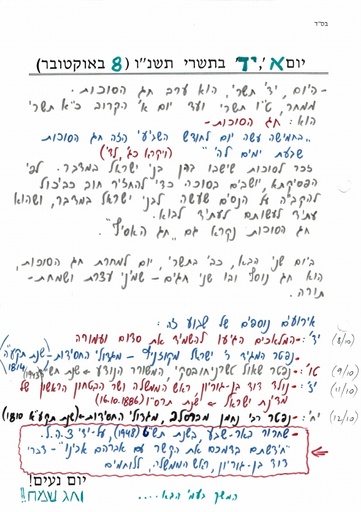 בס"ד
יום א', י"ד בתשרי תשנ"ו (8 באוקטובר)
- היום, י"ד תשרי, הוא ערב חג הסוכות.
ממחר, ט"ו תשרי ועד יום א' הקרוב כ"א תשרי
הוא: חג הסוכות -
"בחמישה עשר יום לחודש השביעי הזה חג הסוכות
שבעת ימים לה'" (ויקרא כג', לד')
זכר לסוכות שישבו בהן בני ישראל במדבר. לפי
יושבים בסוכה כדי להחזיר חוב כביכול
להקב"ה על הנסים שעשה לבני ישראל במדבר, ושהוא
עתיד לעשותם לעתיד לבוא.
חג הסוכות נקרא גם "חג האסיף".
ביום שני הבא, כ"ב תשרי, יום למחרת חג הסוכות,
הוא חג נוסף ובו שני חגים - שמיני עצרת ושמחת -
תורה.
אירועים נוספים של שבוע זה:
(8/10) י"ד: - המלאכים הגיעו להשמיד את סדום ועמורה
- נפטר המגיד ר' ישראל מקוז'ניץ - מגדולי החסידות - שנת תקע"ה 1814
(9/10) ט"ו: - נפטר שאול טשרניחובסקי, המשורר הנודע - שנת תש"ד (1943)
(11/10) - נולד דוד בן-גוריון, ראש הממשלה ושר הבטחון הראשון של
מדינת ישראל - שנת תרמ"ז (16.10.1886)
(12/10) י"ח: - נפטר רבי נחמן מברסלב, מגדולי החסידות - (שנת תקע"א 1810)
- שחרור באר-שבע, בשנת תש"ט (1948), על-ידי צ.ה.ל.
"חידשתם בדמכם את הקשר עם אברהם אבינו" - דברי
דוד בן-גוריון, ראש הממשלה, ללוחמים
יום נעים!
וחג שמח!!
המשך בעמ' הבא....